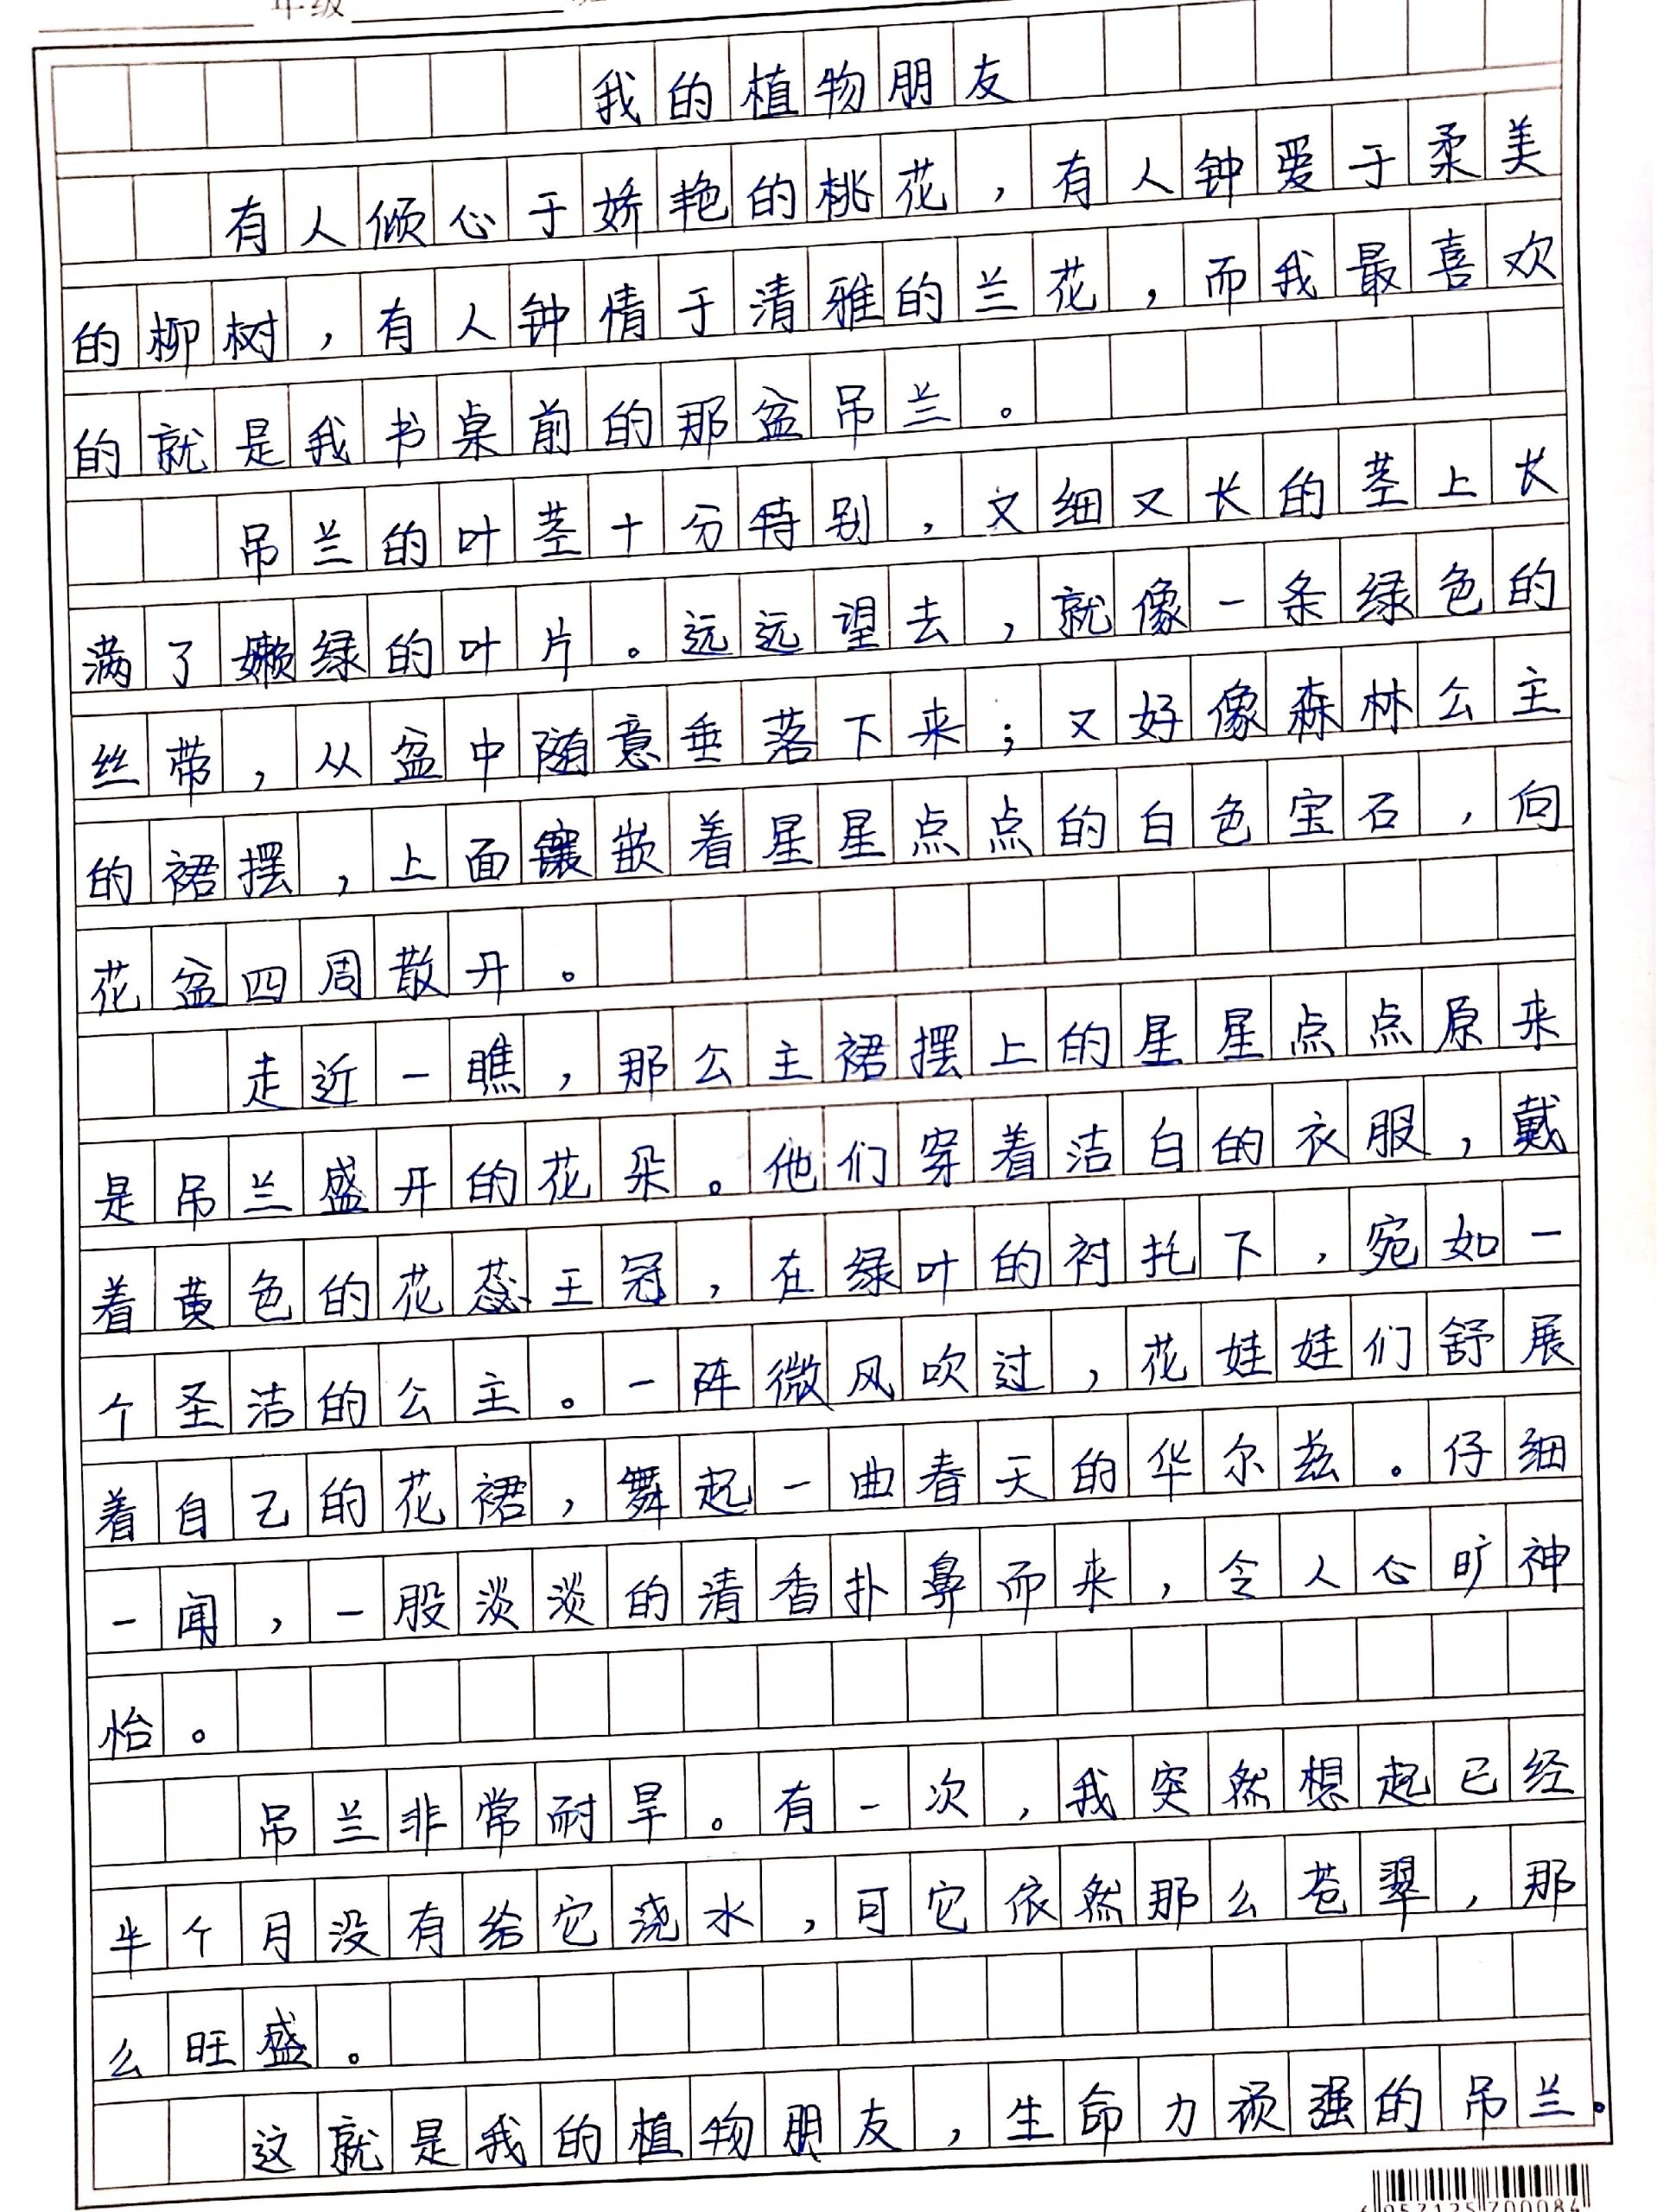 年级
我的植物朋友
有人倾心于娇艳的桃花，有人钟爱于柔美
的柳树，有人钟情于清雅的兰花，而我最喜欢
的就是我书桌前的那盆吊兰。
吊兰的叶茎十分特别，又细又长的茎上长
满了嫩绿的叶片。远远望去，就像一条绿色的
丝带，从盆中随意垂落下来；又好像森林公主
的裙摆，上面镶嵌着星星点点的白色宝石，向
花盆四周散开。
走近一瞧，那公主裙摆上的星星点点原来
是吊兰盛开的花朵。他们穿着洁白的衣服，戴
着黄色的花蕊王冠，在绿叶的衬托下，宛如一
个圣洁的公主。一阵微风吹过，花娃娃们舒展
着自己的花裙，舞起一曲春天的华尔兹。仔细
一闻，一股淡淡的清香扑鼻而来，令人心旷神
怡。
吊兰非常耐旱。有一次，我突然想起已经
半个月没有给它浇水，可它依然那么苍翠，那
么旺盛。
这就是我的植物朋友，生命力顽强的吊兰。